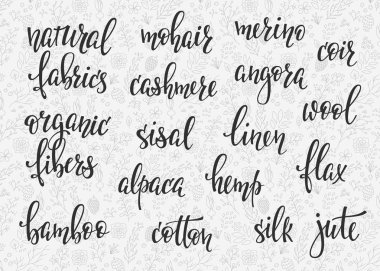 natural
fabrics
mohair
merino
coir
cashmere
angora
wool
organic
fibers
sisal
linen
flax
alpaca
hemp
bamboo
cotton
silk
jute